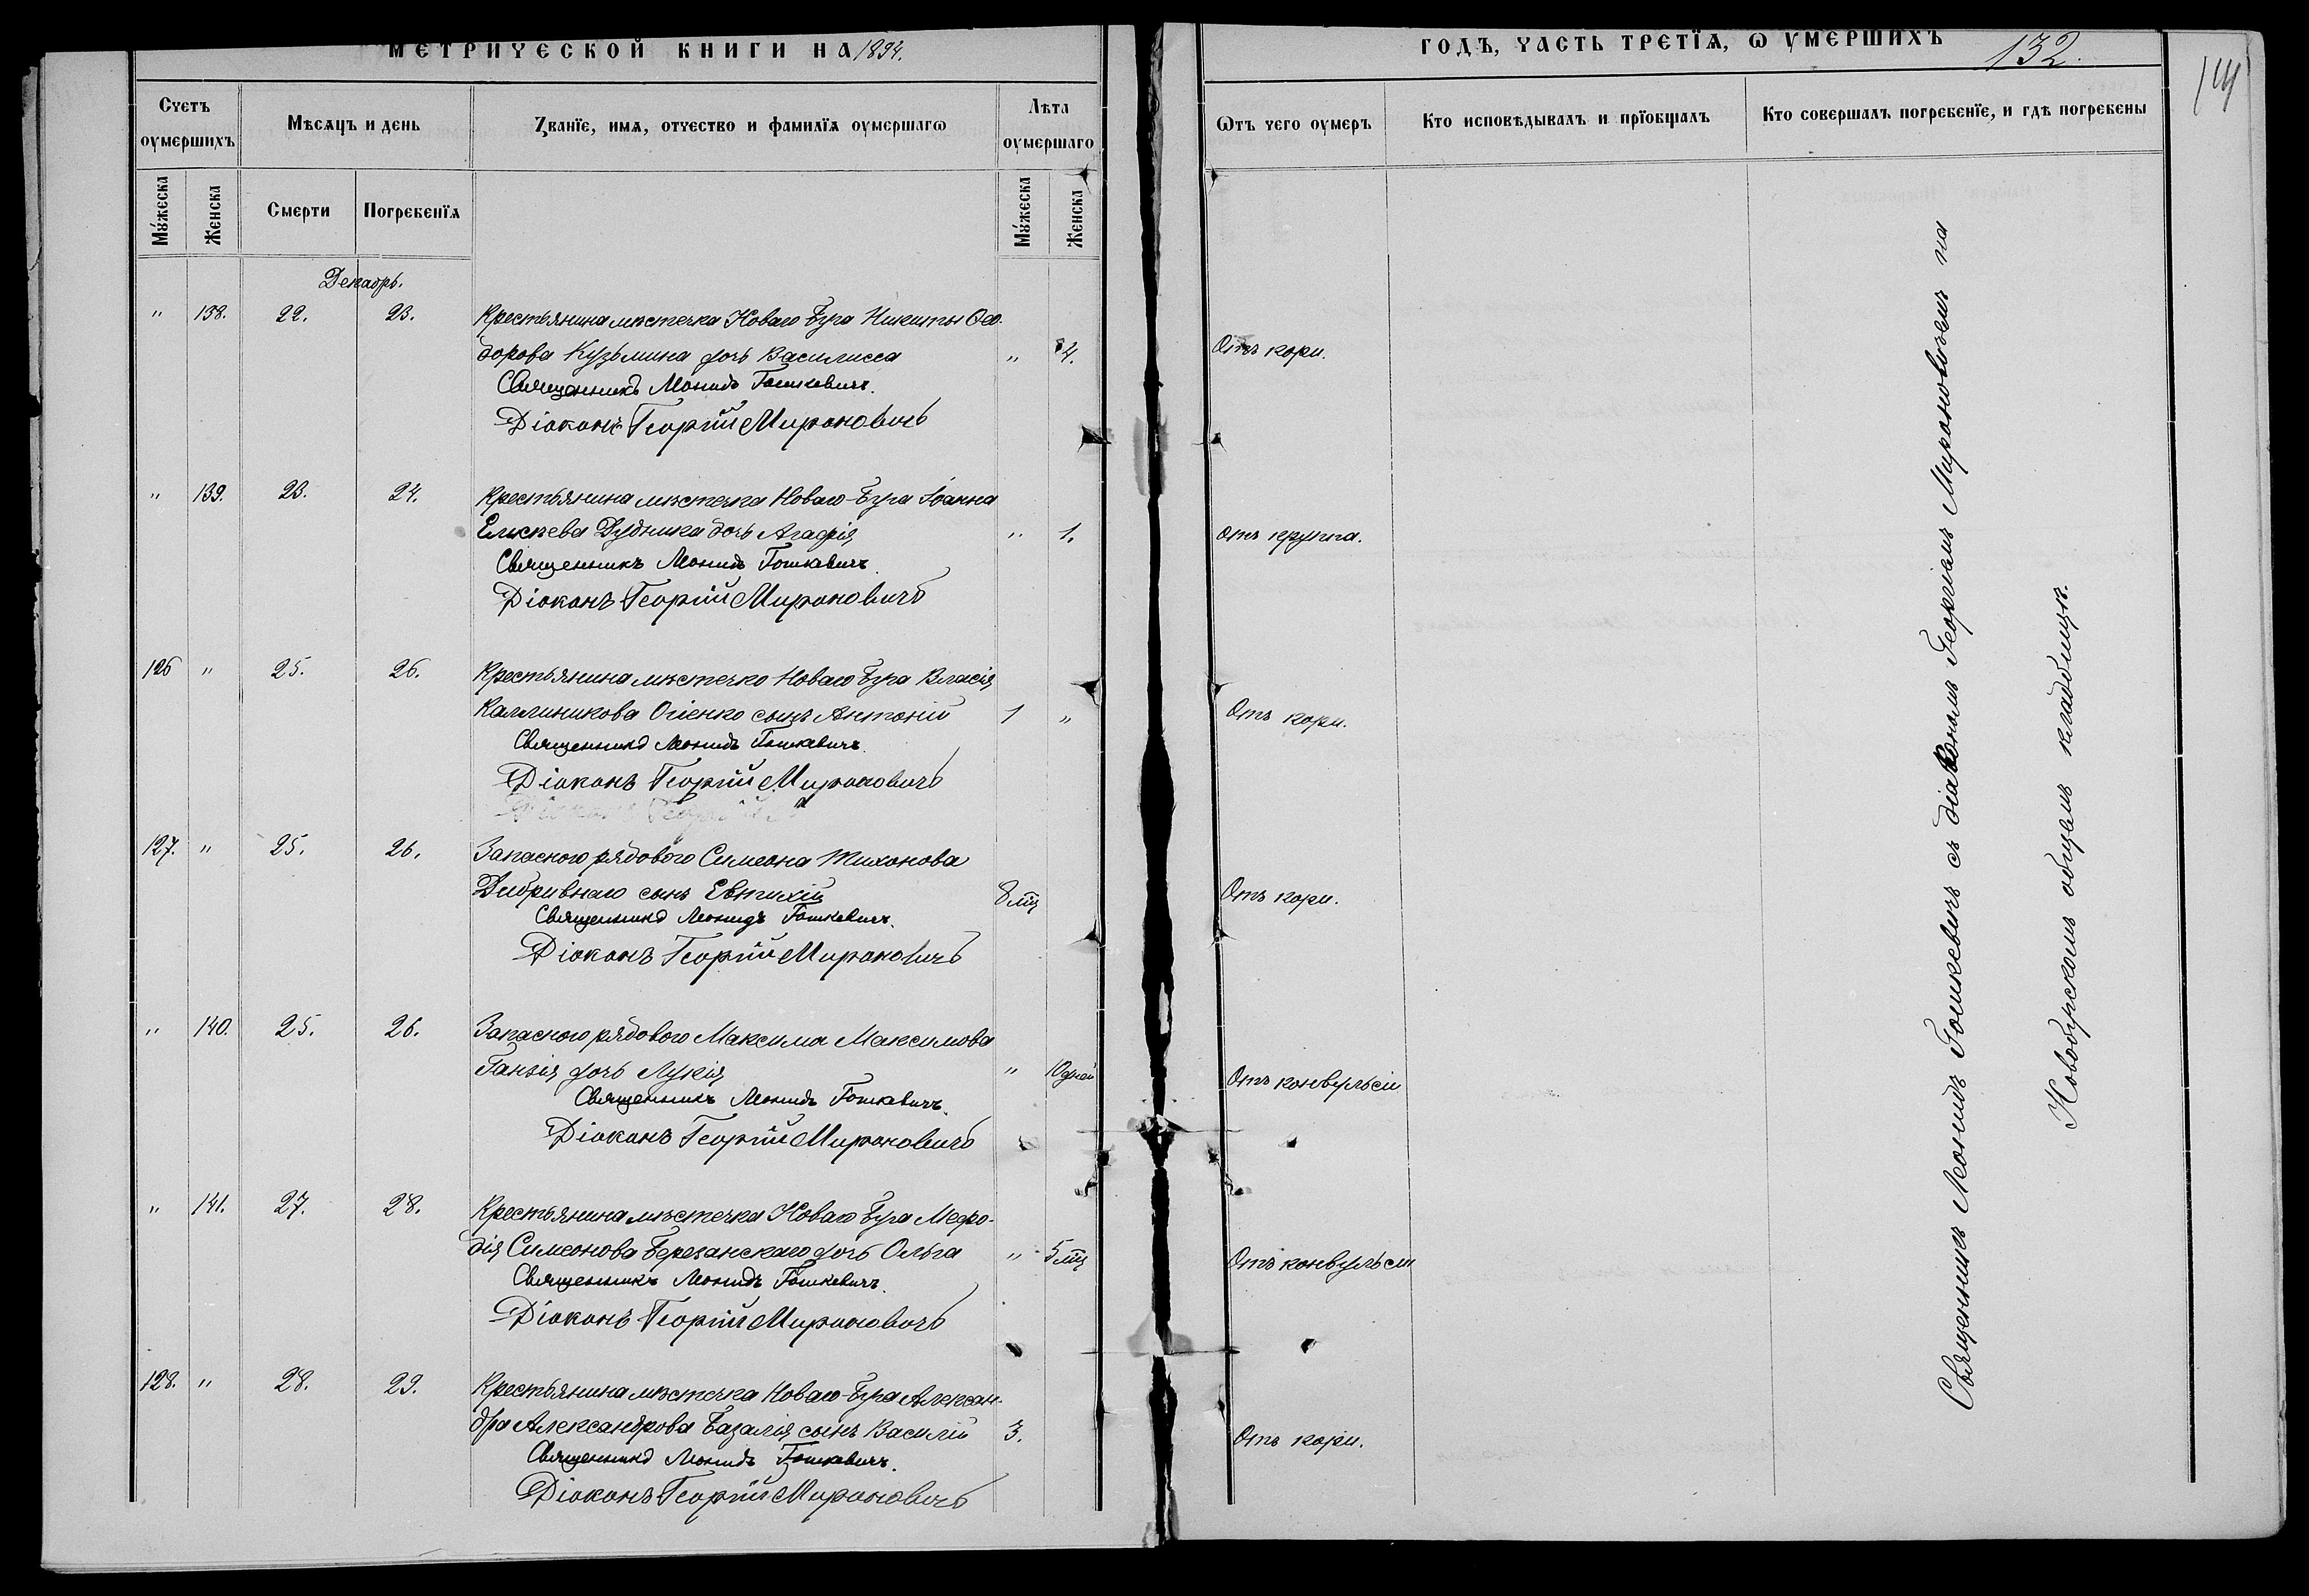 МЕТРИЧЕСКОЙ КНИГИ НА 1894.
ГОДЪ, ЧАСТЬ ТРЕТЇѦ, Ѡ УМЕРШИХЪ
132.
Счетъ оумершихъ
Мѣсѧцъ и день
Званїе, имѧ, отчество и фамилїѧ оумершагѡ
Лѣта оумершаго
Ѿтъ чего оумеръ
Кто исповѣдывалъ и прїобщалъ
Кто совершалъ погребенїе, и гдѣ погребены
Мꙋжеска
Женска
Смерти
Погребенїѧ
Мꙋжеска
Женска
Декабрь.
" 138. 22. 23. Крестьянина мѣстечка Новаго Буга Никиты Ѳео-
дорова Кузьмина дочь Василисса " 4. Отъ кори.
Священникъ Леонидъ Гошкевичъ.
Діаконъ Георгій Мироновичъ
" 139. 23. 24. Крестьянина мѣстечка Новаго-Буга Іоанна
Елисѣева Дудника дочь Агафія " 1. Отъ круппа.
Священникъ Леонидъ Гошкевичъ.
Діаконъ Георгій Мироновичъ
126 " 25. 26. Крестьянина мѣстечко Новаго Буга Власія
Каллиникова Огіенко сынъ Антоній 1 " Отъ кори.
Священникъ Леонидъ Гошкевичъ.
Діаконъ Георгій Мироновичъ
127. " 25. 26. Запасного рядового Симеона Тихонова
Дибривнаго сынъ Евтихій 8 мц Отъ кори.
Священникъ Леонидъ Гошкевичъ.
Діаконъ Георгій Мироновичъ
" 140. 25. 26. Запасного рядового Максима Максимова
Ганзія дочь Лукія " 10 дней Отъ конвульсіи
Священникъ Леонидъ Гошкевичъ.
Діаконъ Георгій Мироновичъ
" 141. 27. 28. Крестьянина мѣстечка Новаго Буга Мефо-
дія Симеонова Березанскаго дочь Ольга " 5 мц Отъ конвульсіи
Священникъ Леонидъ Гошкевичъ.
Діаконъ Георгій Мироновичъ
128. " 28. 29. Крестьянина мѣстечка Новаго-Буга Алексан-
дра Александрова Базалія сынъ Василій 3. Отъ кори.
Священникъ Леонидъ Гошкевичъ.
Діаконъ Георгій Мироновичъ
Священникъ Леонидъ Гошкевичъ съ діакономъ Георгіемъ Мироновичемъ на
Новобугскомъ общемъ кладбищѣ.